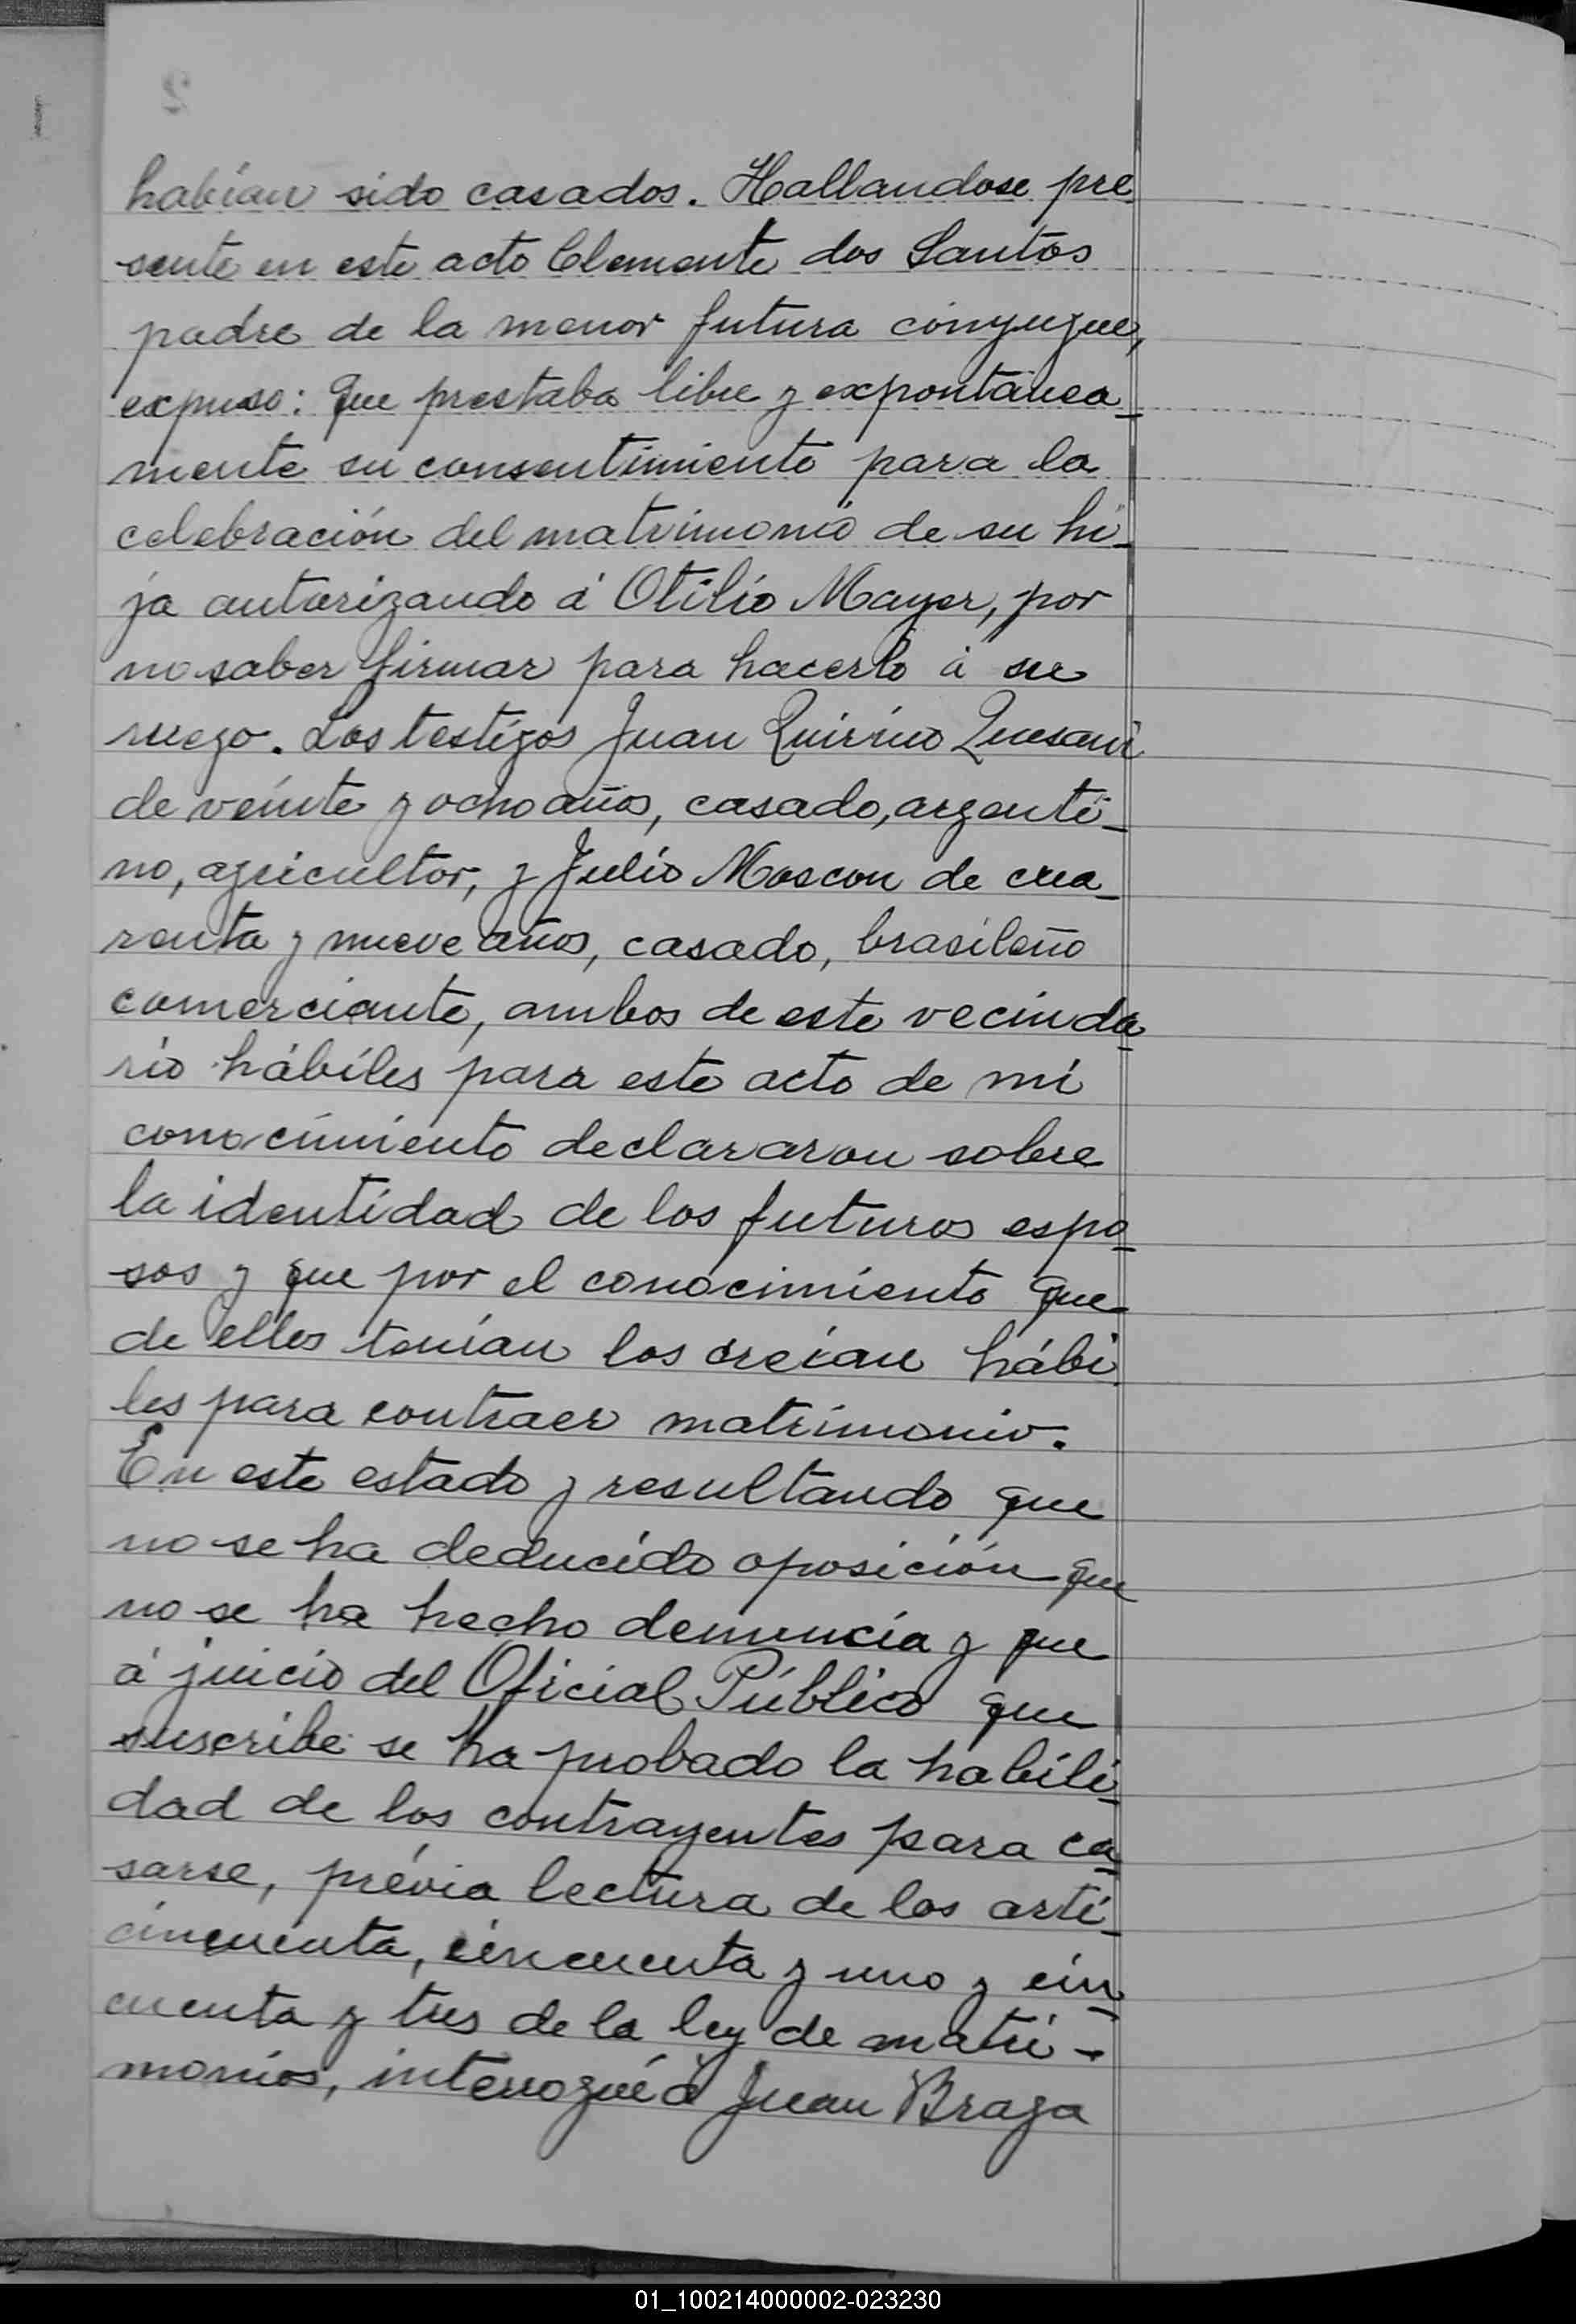 habían sido casados. Hallandose pre
sente en este acto Clemente dos Santos
padre de la menor futura cónyugue,
expuso: Que prestaba libre y expontánea-
mente su consentimiento para la
celebración del matrimonio de su hi-
ja autorizando á Otilio Mayer, por
no saber firmar para hacerlo á su
ruego. Los testigos Juan Quirino Quesani
de veinte y ocho años, casado, argenti-
no, agricultor, y Julio Moscon de cua-
renta y nueve años, casado, brasileño
comerciante, ambos de este vecinda-
rio hábiles para este acto de mi
conocimiento declararon sobre
la identidad de los futuros espo-
sos y que por el conocimiento que
de ellos tenían los creían hábi-
les para contraer matrimonio.
En este estado y resultando que
no se ha deducido oposición que
no se ha hecho denuncia y que
á juicio del Oficial Público que
suscribe se ha probado la habili-
dad de los contrayentes para ca-
sarse, prévia lectura de los arti-
cincuenta, cincuenta y uno y cin-
cuenta y tres de la ley de matri-
monios, interrogué á Juan Braga
01_100214000002-023230